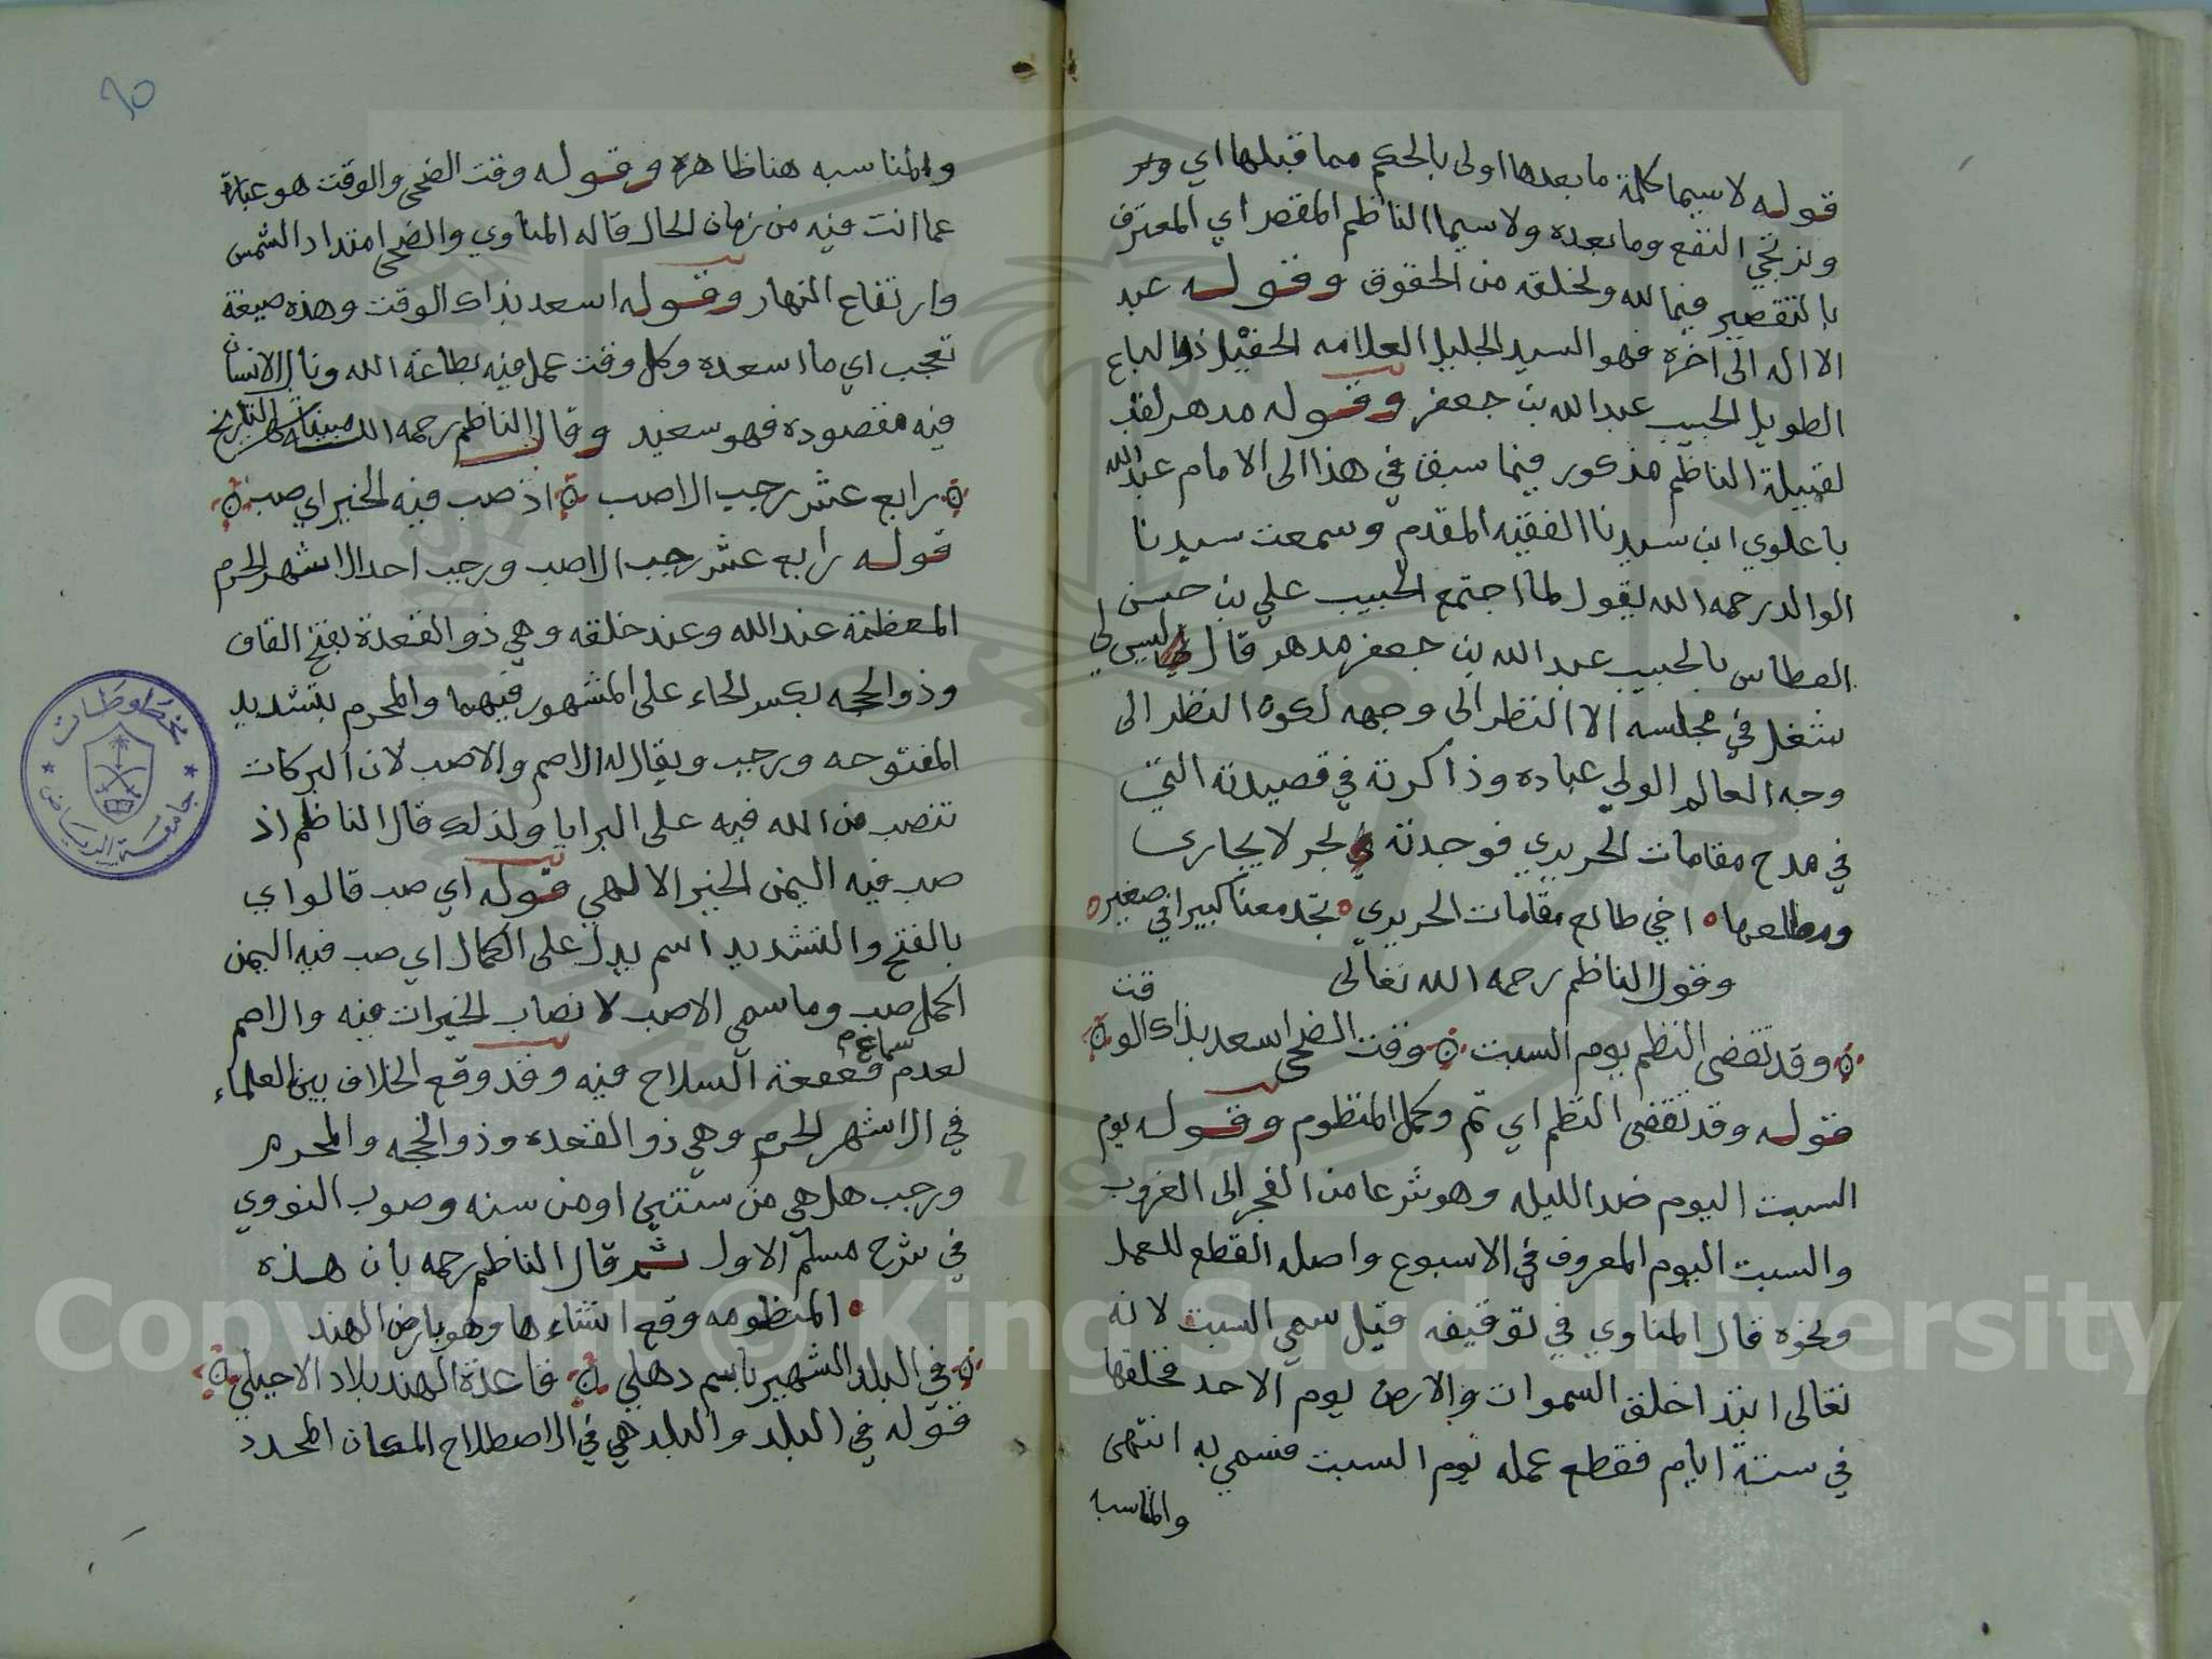 قوله لاسيما كلمة ما بعدها اولى بالحكم مما قبلها اي
ونرتجي النفع وما بعده ولاسيما الناظم المقصر اي المعترف
بالتقصير فيما لله ولخلقه من الحقوق وقوله عبد
الا اله الى اخره فهو السيد الجليل العلامه الحفيل ذو الباع
الطويل الحبيب عبد الله بن جعفر وقوله مدهر لقب
لقبيلة الناظم مذكور فيما سبق في هذا الى الامام عبد الله
باعلوي ابن سيدنا الفقيه المقدم وسمعت سيدنا
الوالد رحمه الله يقول لما اجتمع الحبيب علي بن حسن
العطاس بالحبيب عبد الله بن جعفر مدهر قال ليس لي
شغل في مجلسه الا النظر الى وجهه لكون النظر الى
وجه العالم الولي عباده وذاكرته في قصيدته التي
في مدح مقامات الحريري فوجدته بحر لا يجارى
ومطلعها اخي طالع مقامات الحريري تجد معنا كبيرا في صغير
وقول الناظم رحمه الله تعالى
وقد تقضى النظم يوم السبت وقت الضحى اسعد بذاك الوقت
قوله وقد تقضى النظم اي تم وكمل المنظوم وقوله يوم
السبت اليوم ضد الليله وهو شرعا من الفجر الى الغروب
والسبت اليوم المعروف في الاسبوع واصله القطع للعمل
ونحوه قال المناوي في توقيفه قيل سمي السبت لانه
تعالى ابتدا خلق السموات والارض يوم الاحد فخلقها
في ستة ايام فقطع عمله يوم السبت فسمي به انتهى
والمناسبه
٦٥
والمناسبه هنا ظاهره وقوله وقت الضحى والوقت هو عبارة
عما انت فيه من زمان الحال قاله المناوي والضحى امتداد الشمس
وارتفاع النهار وقوله اسعد بذاك الوقت وهذه صيغة
تعجب اي ما اسعده وكل وقت عمل فيه بطاعة الله ونال الانسان
فيه مقصوده فهو سعيد وقال الناظم رحمه الله التاريخ
رابع عشر رجب الاصب اذ صب فيه الخير اي صب
قوله رابع عشر رجب الاصب ورجب احد الاشهر الحرم
المعظمة عند الله وعند خلقه وهي ذو القعدة بفتح القاف
وذو الحجه بكسر الحاء على المشهور فيهما والمحرم بتشديد
المفتوحه ورجب ويقال له الاصم والاصب لان البركات
تنصب من الله فيه على البرايا ولذلك قال الناظم اذ
صب فيه اليمن الخير الالهي قوله اي صب قالوا اي
بالفتح والتشديد اسم يدل على الكمال اي صب فيه اليمن
اكمل صب وما سمي الاصب لانصاب الخيرات فيه والاصم
لعدم سماع قعقعة السلاح فيه وقد وقع الخلاف بين العلماء
في الاشهر الحرم وهي ذو القعده وذو الحجه والمحرم
ورجب هل هي من سنتين او من سنه وصوب النووي
في شرح مسلم الاول ثم قال الناظم رحمه بان هذه
المنظومه وقع انشاءها وهو بارض الهند
في البلد الشهير باسم دهلي قاعدة الهند بلاد
قوله في البلد والبلد هي في الاصطلاح المكان المحدد
مخطوطات
جامعة الرياض
Copyright © King Saud University